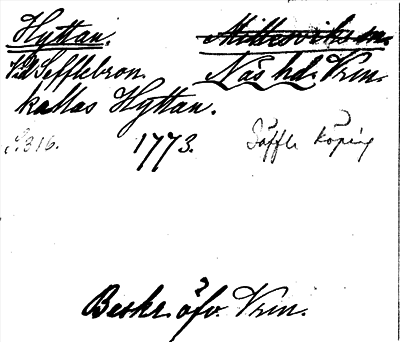 Hyttan.
Näs hd. Vrm.
Vid Sefflebron.
kallas Hyttan.
S. 316. 1773. Säffle köping
Beskr. öfv. Vrm.